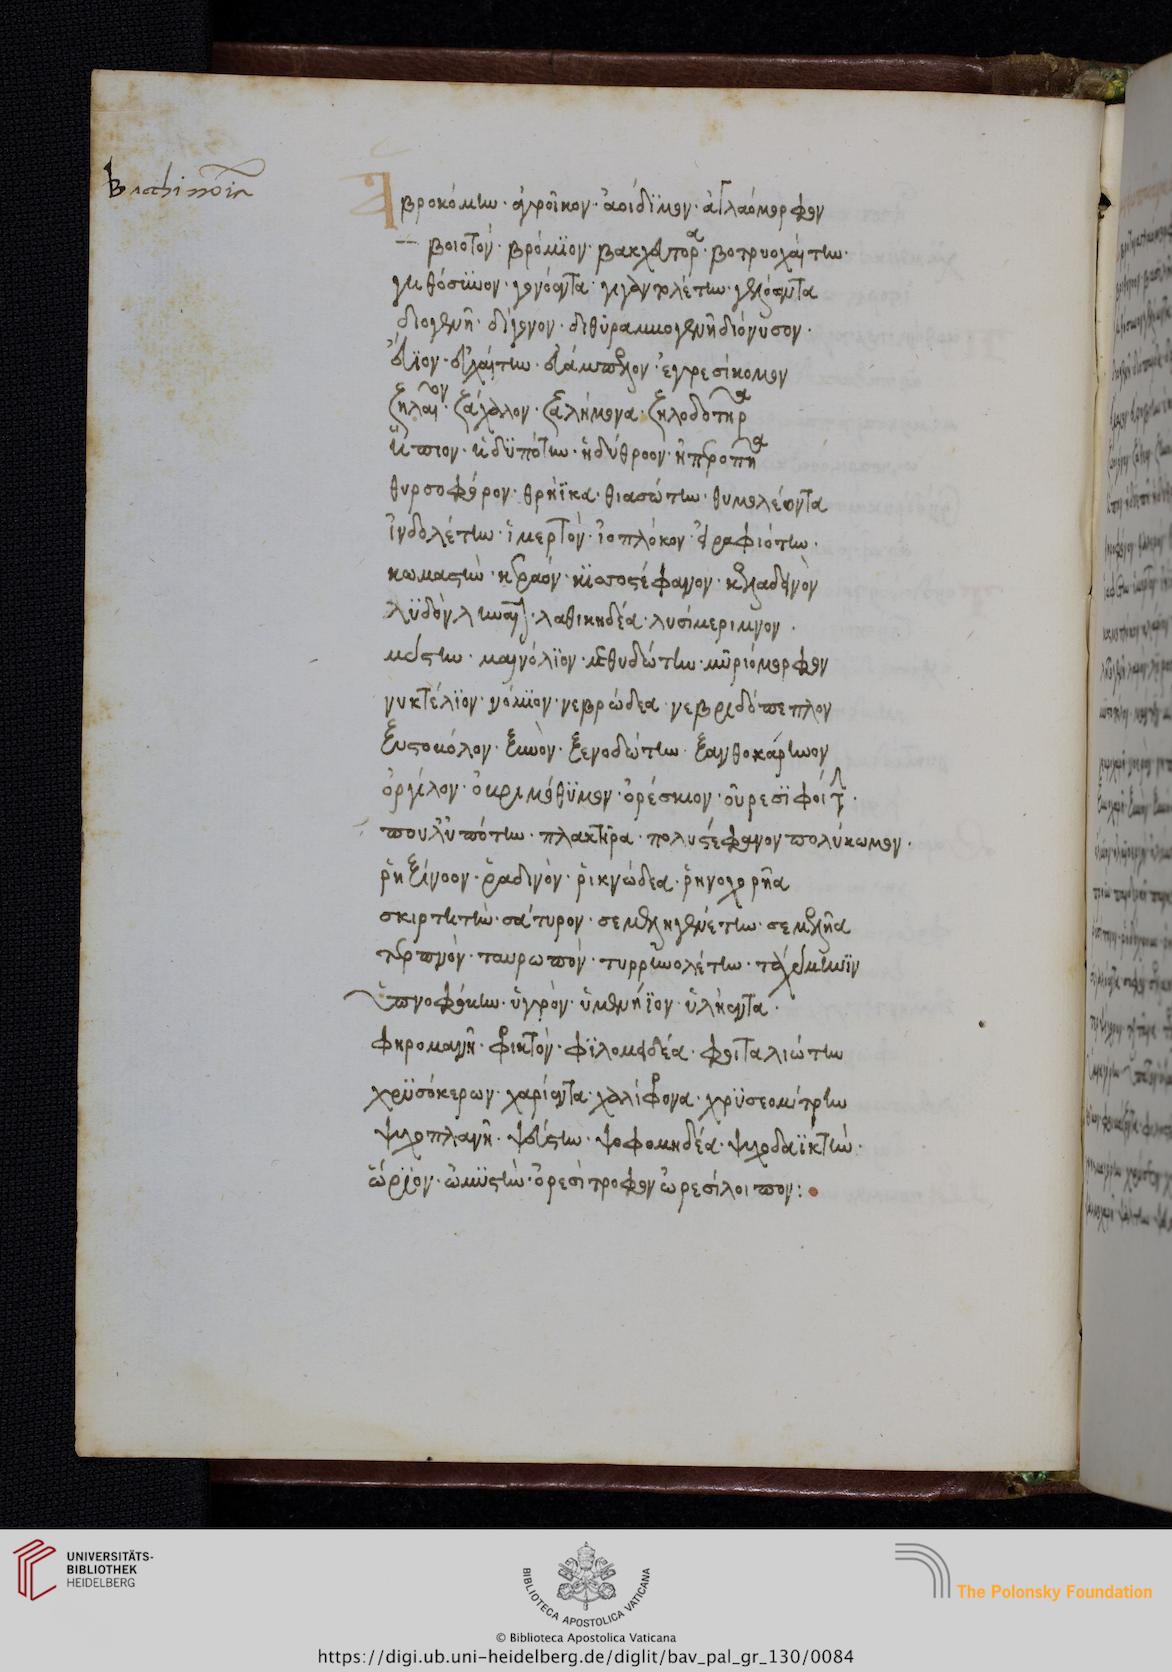 Bacchi noīa
Ἁβροκόμην· ἀγροῖκον· ἀοίδϊμον· ἀγλαόμορφον
βοιοτόν· βρόμϊον· βακχεύτορα· βοτρυοχαίτην·
γηθόσϊωον· γονόεντα· γιγαντολέτην· γελόωντα
διογενῆ· δίγονον· διθυραμμογενῆ διόνυσον·
εὔϊον· εὐχαίτην· εὐάμπελον· ἐγρεσίκομον
ζηλαῖον· ζάχολον· ζηλήμονα· ζηλοδοτῆρα
ἤπιον· ἡδϋπότην· ἡδύθροον· ἠπεροπῆα
θυρσοφόρον· θρήϊκα· θιασώτην· θυμολέοντα
ἰνδολέτην· ἱμερτόν· ἰοπλόκον· ἰραφιότην·
κωμαστὴν· κεραόν· κϊσσοστέφανον· κελαδεινὸν
λϋδὸν ληναῖον· λαθικηδέα· λυσίμεριμνον·
μύστην· μαινόλϊον· μεθυδώτην· μῡριόμορφον
νυκτέλϊον· νόμϊον· νεβρώδεα· νεβριδόπεπλον
ξυστοβόλον· ξυνὸν· ξενοδώτην· ξανθοκάρηνον
ὀργίλον· ὀκριμόθϋμον· ὀρέσκιον· οὐρεσϊφοίτην·
πουλυπότην· πλακτῆρα· πολυστέφανον πολύκωμον·
ῥηξίνοον· ῥαδινὸν· ῥικνώδεα· ῥηνοφορῆα
σκιρτητὴν· σάτυρον· σεμεληγενέτην· σεμελῆα
τερπνόν· ταυρωπὸν· τυρρηνολέτην· ταχύμηνϊν
ὑπνοφόβην· ὑγρὸν· ὑμενήϊον· ὑλήεντα·
φηρομανῆ· φρικτὸν· φϊλομειδέα· φοιταλιώτην
χρϋσόκερων· χαρίεντα· χαλίφρονα· χρϋσεομίτρην
ψυχοπλανῆ· ψεύστην· ψοφομηδέα· ψυχοδαϊκτὴν·
ὥρϊον· ὠμϋστὴν· ὀρεσὶτροφον ὠρεσίδοιπον:
UNIVERSITÄTS-
BIBLIOTHEK
HEIDELBERG
BIBLIOTECA APOSTOLICA VATICANA
© Biblioteca Apostolica Vaticana
The Polonsky Foundation
https://digi.ub.uni-heidelberg.de/diglit/bav_pal_gr_130/0084